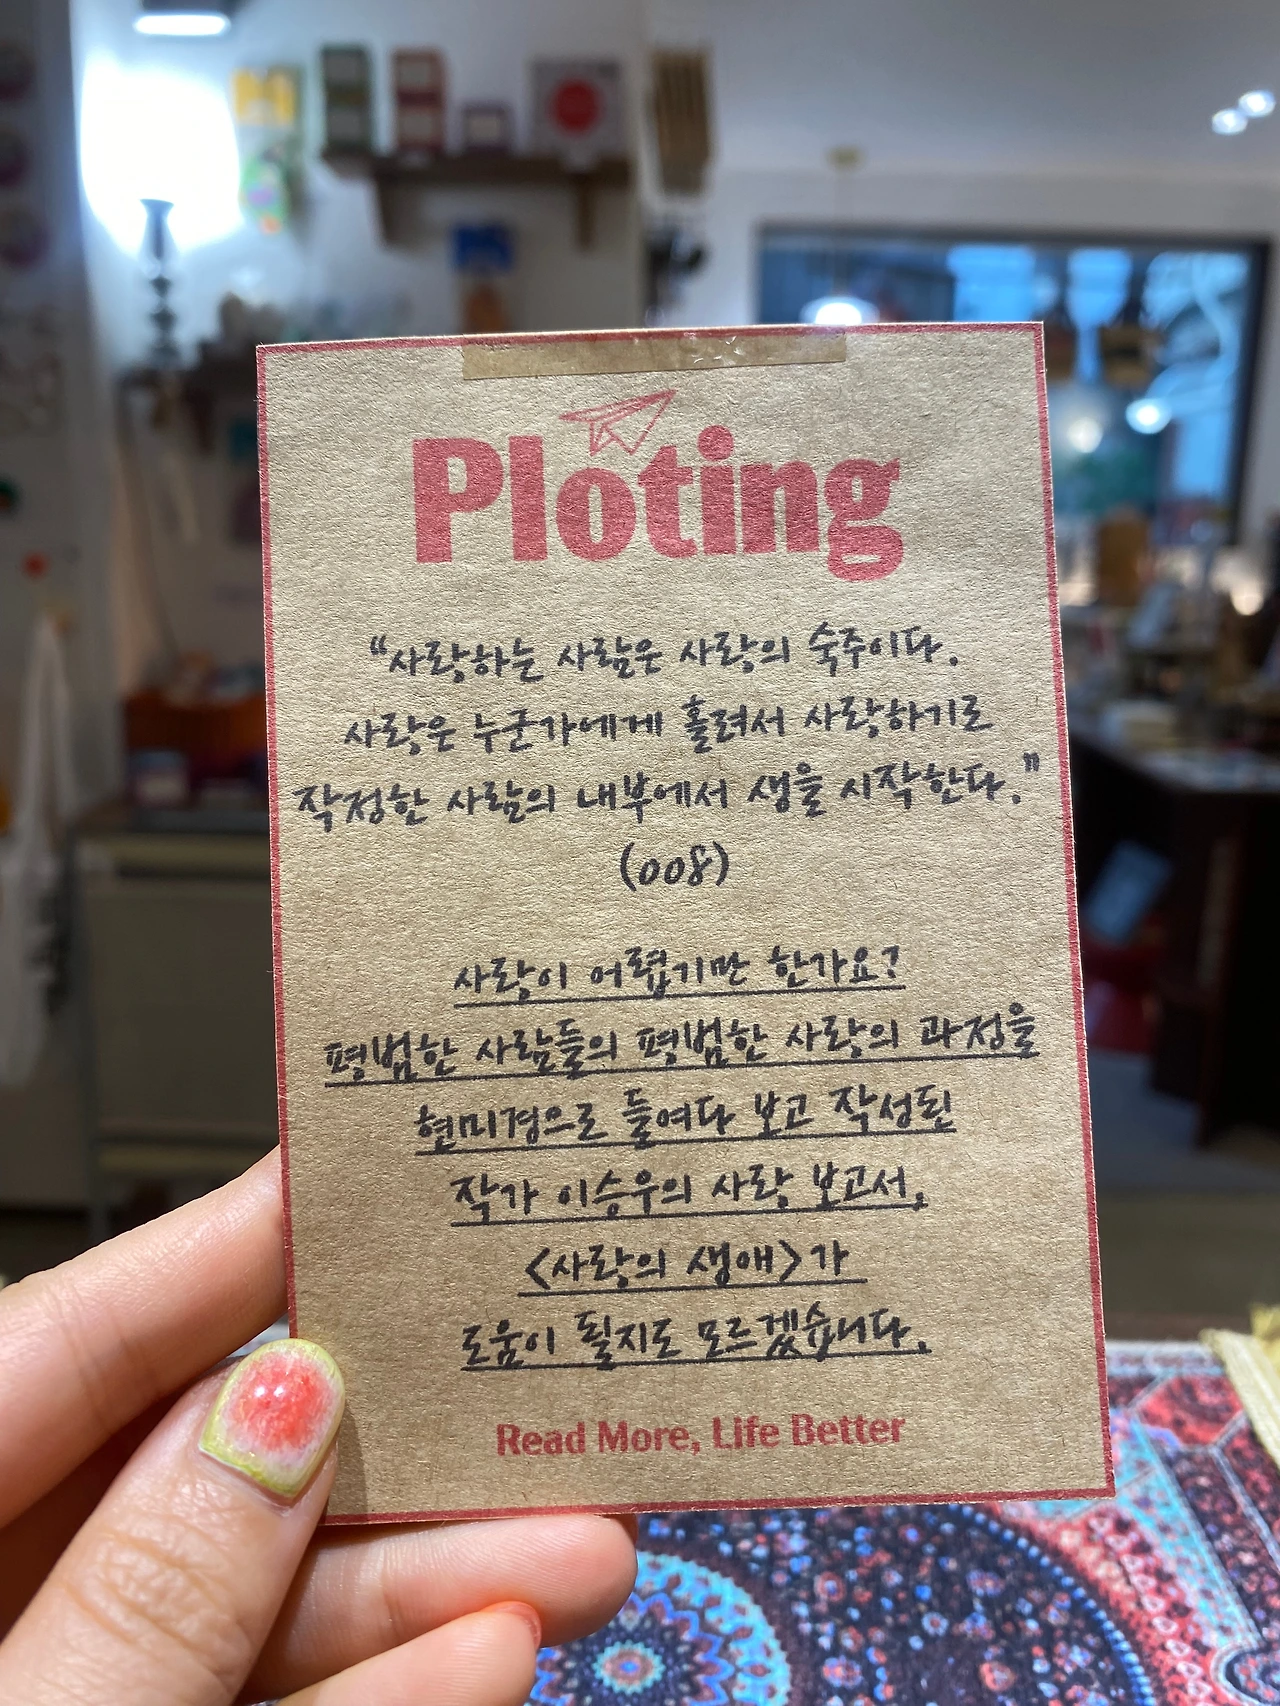 Ploting
"사랑하는 사람은 사랑의 숙주이다.
사랑은 누군가에게 홀려서 사랑하기로
작정한 사람의 내부에서 생을 시작한다."
(008)
사랑이 어렵기만 한가요?
평범한 사람들의 평범한 사랑의 과정을
현미경으로 들여다 보고 작성된
작가 이승우의 사랑 보고서,
<사랑의 생애>가
도움이 될지도 모르겠습니다.
Read More, Life Better